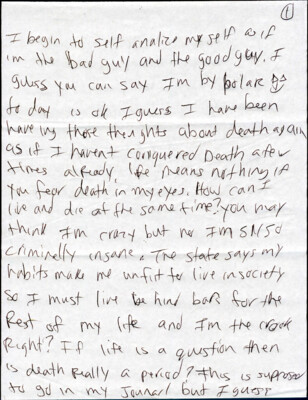 1
I begin to self analize my self as if
im the bad guy and the good guy. I
guess you can say Im by polare
to day is ok I guess I have been
having those thoughts about death again
as if I havent conquered Death a few
times already, life means nothing if
you fear death in my eyes. How can I
live and die at the same time? you may
think Im crazy but no Im
criminally insane. The state says my
habits make me unfit to live in society
so I must live be hind bars for the
Rest of my life and Im the crook
Right? If life is a question then
is death really a period? This is supposed
to go in my Jounarl but I guess